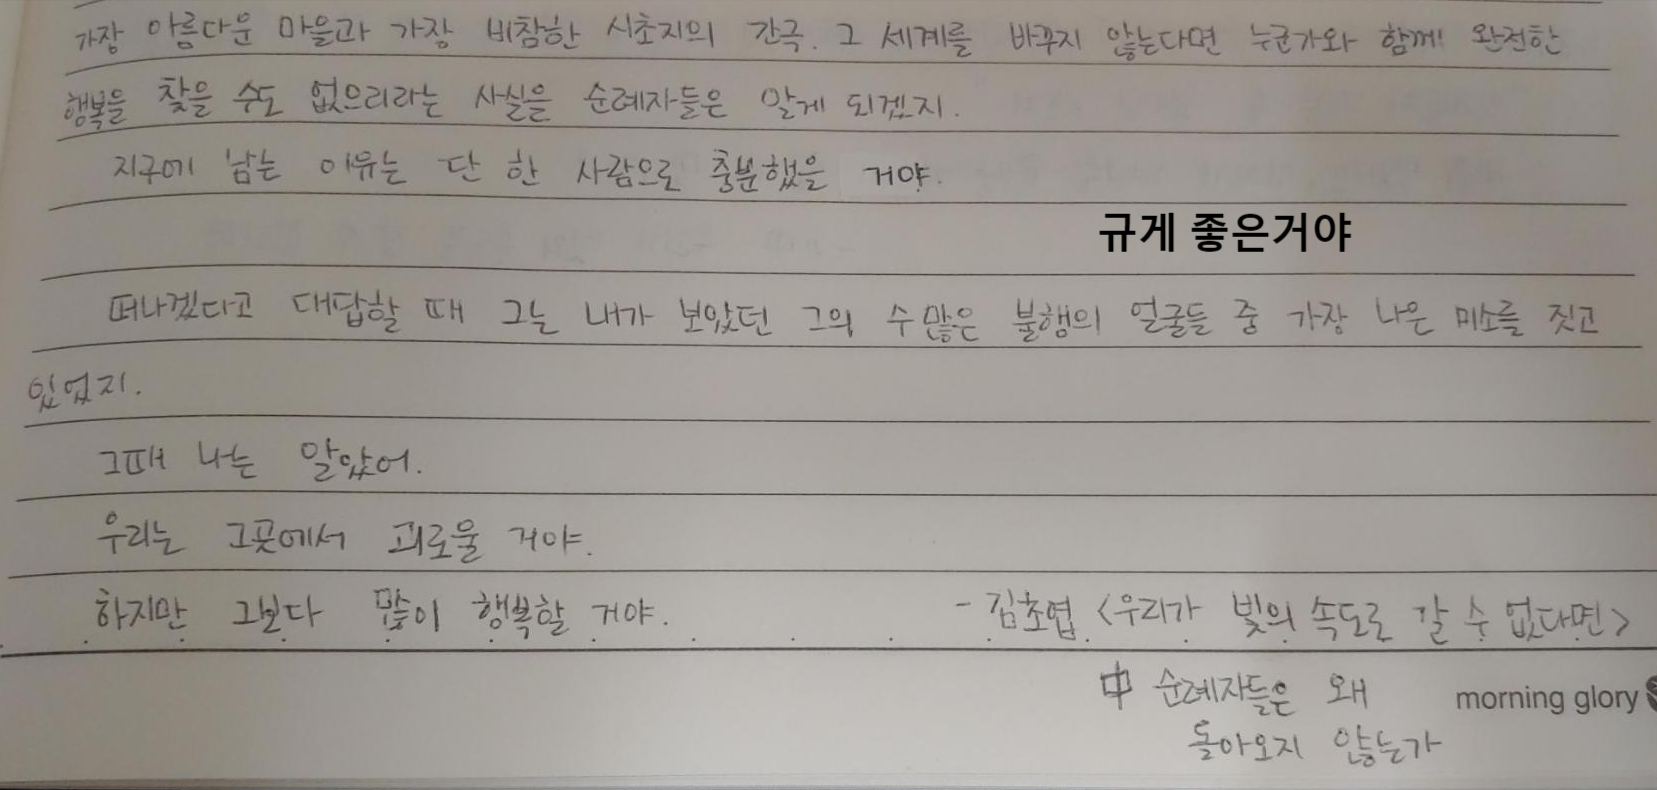 가장 아름다운 마을과 가장 비참한 시초지의 간극. 그 세계를 바꾸지 않는다면 누군가와 함께! 완전한
행복을 찾을 수도 없으리라는 사실을 순례자들은 알게 되겠지.
지구에 남는 이유는 단 한 사람으로 충분했을 거야.
규게 좋은거야
떠나겠다고 대답할 때 그는 내가 보았던 그의 수많은 불행의 얼굴들 중 가장 나은 미소를 짓고
있었지.
그때 나는 알았어.
우리는 그곳에서 괴로울 거야.
하지만 그보다 많이 행복할 거야. - 김초엽 <우리가 빛의 속도로 갈 수 없다면>
中 순례자들은 왜 morning glory
돌아오지 않는가